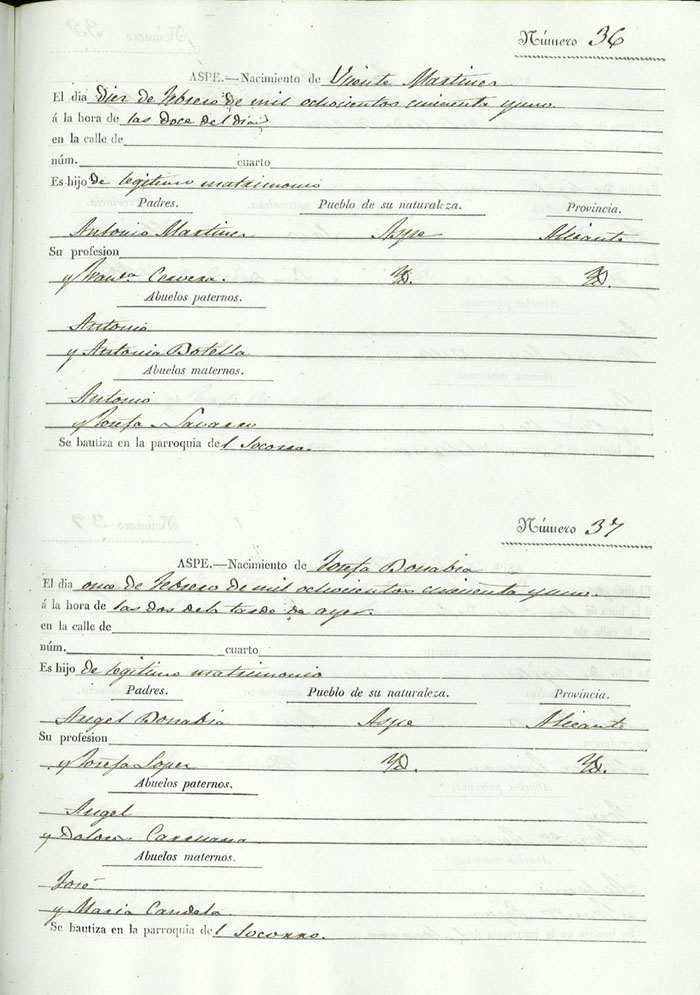 Número 36
ASPE.—Nacimiento de Vicente Martinez
El dia diez de Febrero de mil ochocientos cincuenta y uno
á la hora de las doce del dia
en la calle de
núm. cuarto
Es hijo de legitimo matrimonio
Padres. Pueblo de su naturaleza. Provincia.
Antonio Martinez Aspe Alicante
Su profesion
y Franca. Cervera. Yd. Yd.
Abuelos paternos.
Antonio
y Antonia Botella
Abuelos maternos.
Antonio
y Josefa Navarro
Se bautiza en la parroquia del Socorro.
Número 37
ASPE.—Nacimiento de Josefa Bonabia
El dia once de Febrero de mil ochocientos cincuenta y uno.
á la hora de las dos dela tarde de ayer.
en la calle de
núm. cuarto
Es hijo de legitimo matrimonio
Padres. Pueblo de su naturaleza. Provincia.
Angel Bonabia Aspe Alicante
Su profesion
y Josefa Lopez Yd. Yd.
Abuelos paternos.
Angel
y Dolores Caravana
Abuelos maternos.
José
y Maria Candela.
Se bautiza en la parroquia del Socorro.